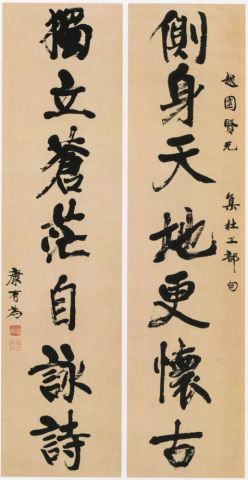 側身天地更懷古
越園賢兄
集杜工部句
獨立蒼茫自詠詩
康有為